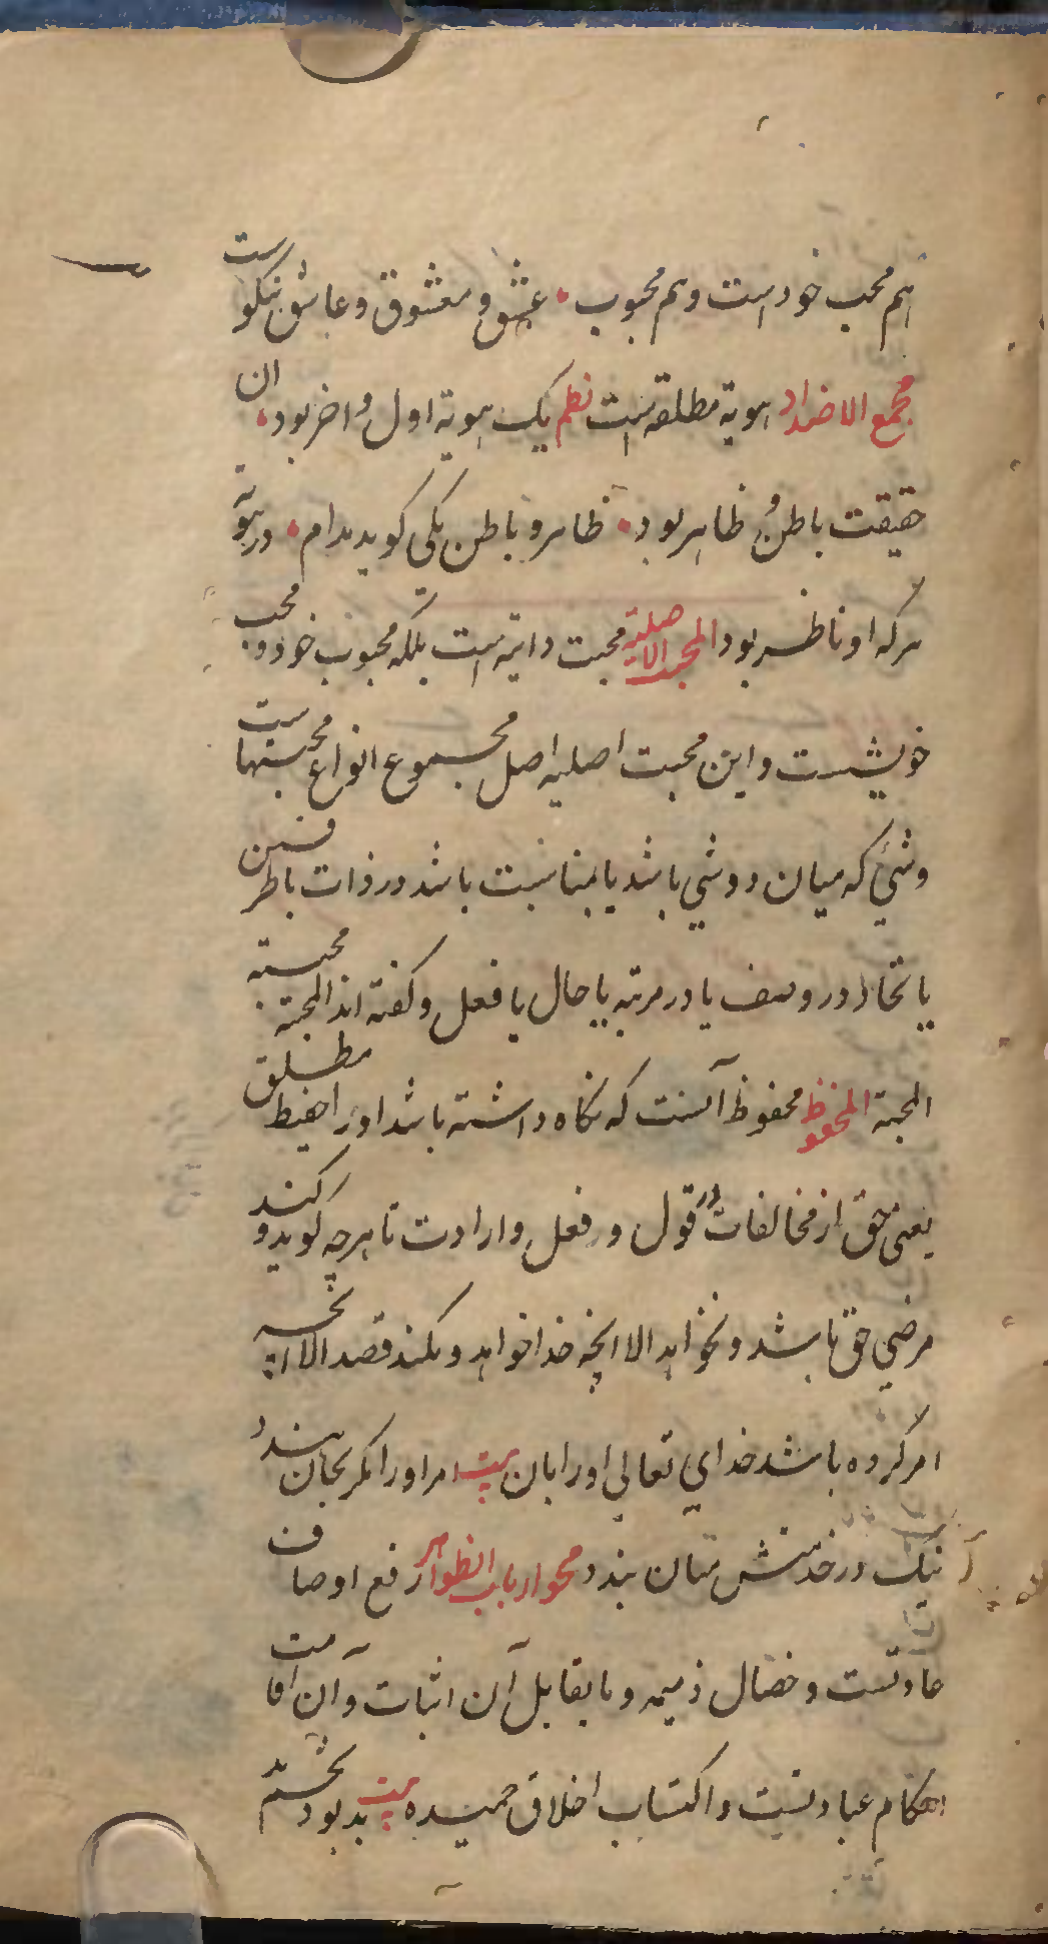 هم محب خود است و هم محبوب • عشق و معشوق و عاشق نیکوست
مجمع الاضداد هویة مطلقه است نظم یک هویة اول و اخر بود • ان
حقیقت باطن و ظاهر بود • ظاهر و باطن یکی کوید مدام • در هویة
هرکه او ناظر بود المحبة الاصلیة محبت ذاتیه است بلکه محبوب خود و محب
خویشست و این محبت اصلیه اصل مجموع انواع محبتهاست
وشیٔ که میان دو شی باشد یا بمناسبت باشد در ذات باطرفین
یا اتحاد در وصف یا در مرتبه یا حال یا فعل و کفته اند المحبة محبته
المحبة المحفوظ محفوظ آنست که نکاه داشته باشد او را حفیظ مطلق
یعنی حق از مخالفات در قول و فعل و ارادت تا هرچه کوید و کند
مرضی حق باشد و نخواهد الا انچه خدا خواهد و نکند قصد الا انچه
امر کرده باشد خدای تعالی او را بان بیت امر او را اکر بجان بندهٔ
نیک در خدمتش میان بندد محو ارباب الظواهر رفع اوصاف
عادتست و خصال ذمیمه و ما یقابل آن اثبات و آن اقامت
احکام عبادتست و اکتساب اخلاق حمیده بیت بد بود بخشید